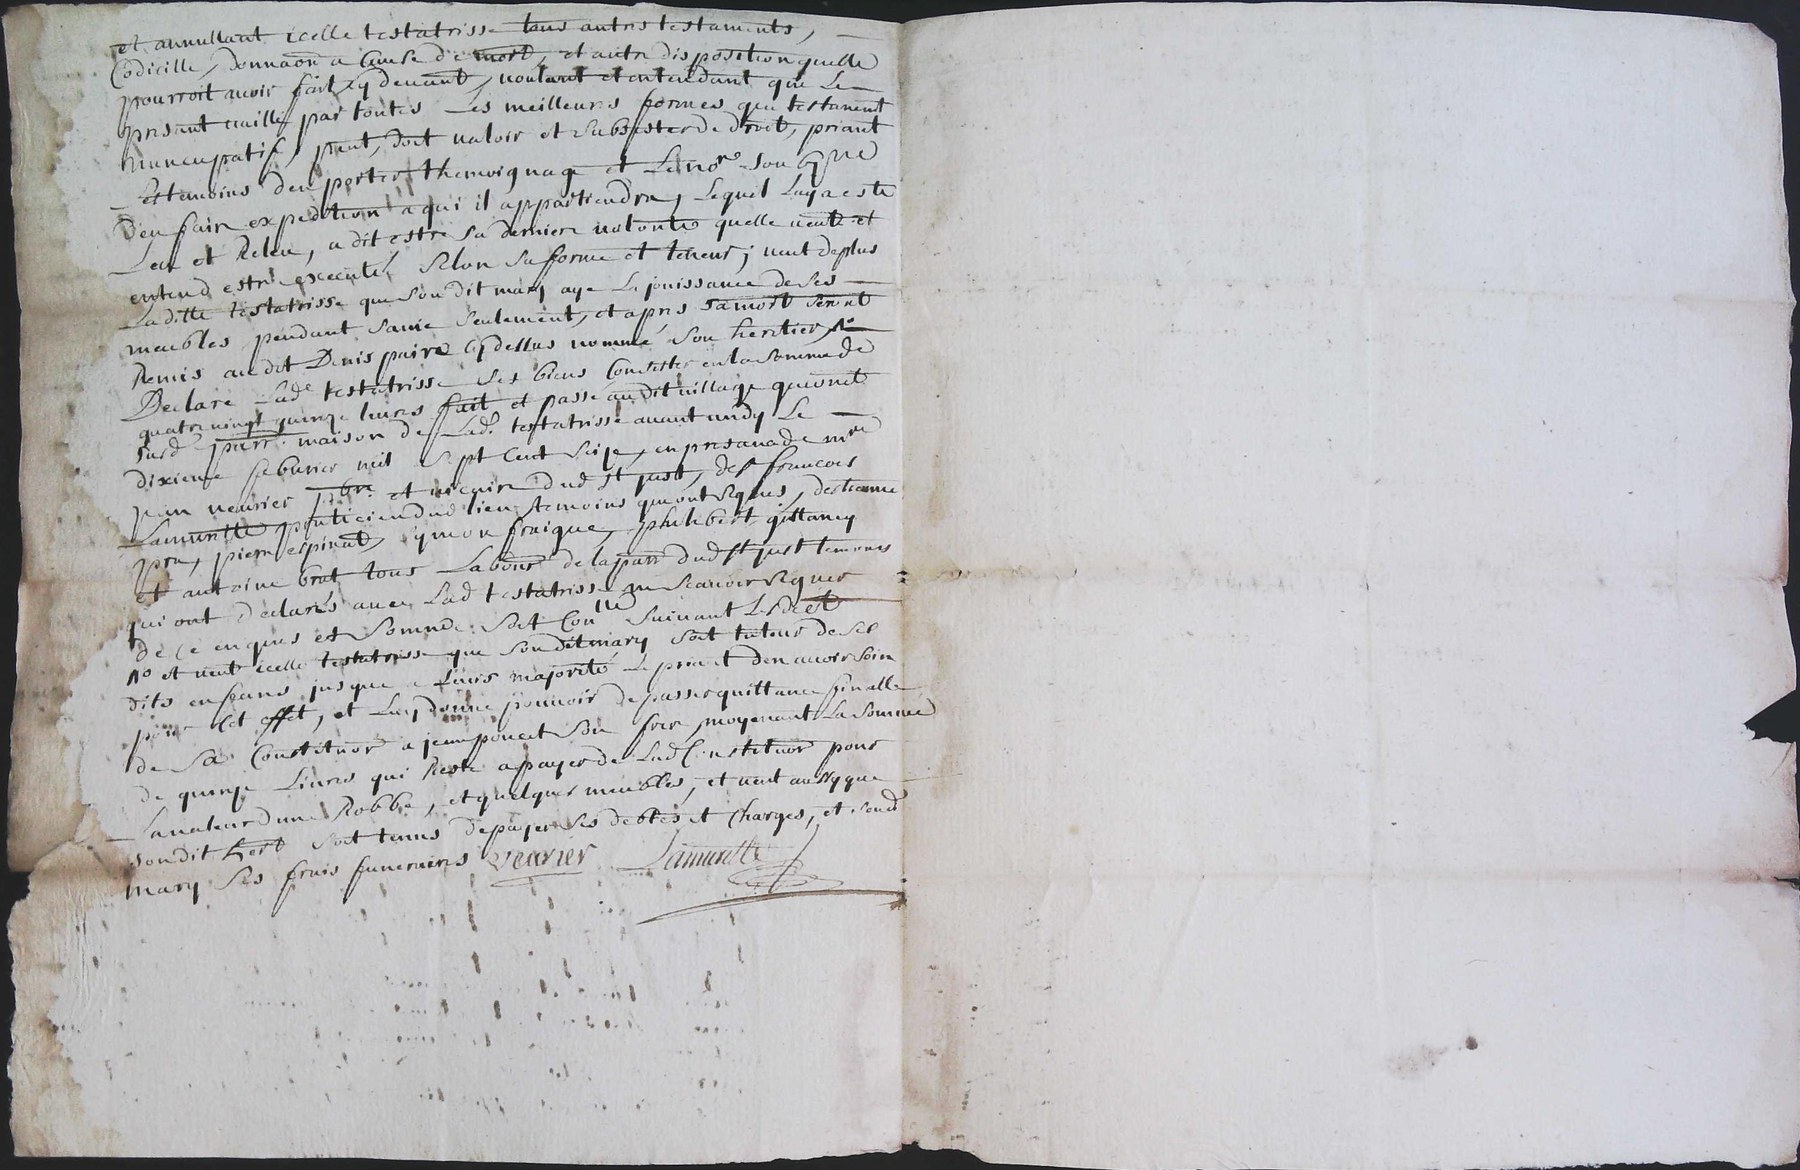 et annullant icelle testatrisse tous autres testaments,
Codicille, donnaõn a Cause de mort, et autre disposition quelle
pourroit avoir fait cy devant, voulant et entendant que Le
presant vaille par toutes Les meilleures formes que testament
nuncupatif, peut, doit valoir et subsister de droit, priant
Les tesmoins den porter themoignage et Le nore soub signé
den faire expedition a qui il appartiendra, Lequel Luy a esté
Leu et Releu, a dit estre sa derniere volonte quelle veut et
entend estre executé selon sa forme et teneur; veut deplus
Laditte testatrisse que son dit mary aye La jouissance de ses
meubles pendant sa vie seulement, et apres sa mort seront
Remis audit Denis paire cy dessus nommé son heritier,
Declare Lade testatrisse ses biens Consister en la somme de
quatre vingt quinze livres fait et passé audit village
susd parr. maison de Lade testatrisse avant midy Le
dixieme febvrier mil sept Cent seize, en presance de mre
jean veurier pbre et vicaire dud st just, de sr francois
Lamurette praticien dud lieu temoins qui ont signes,
pra, pierre espinat, ymon fraigue, philibert
et antoine brat tous Labours de la parr dud st just temoins
qui ont declarés avec Lad testatrisse ne scavoir signer
de ce enquis et somme soit Conlle suivant Ledict
no et veut icelle testatrisse que son dit mary soit tuteur de ses
dits enfans jusque a Leurs majorité Le priant den avoir soin
pour Cet effet, et Luy donne pouvoir de passer quittance finalle
de sa Constituõn a jean poncet son frere, moyenant La somme
de quinze Livres qui Reste a payer de Lad Constituõn pour
La valeur dune Robbe, et quelques meubles, et veut aussy que
son dit hert soit tenus de payer ses debtes et Charges, et sond
mary ses frais funeraires veurier Lamurette